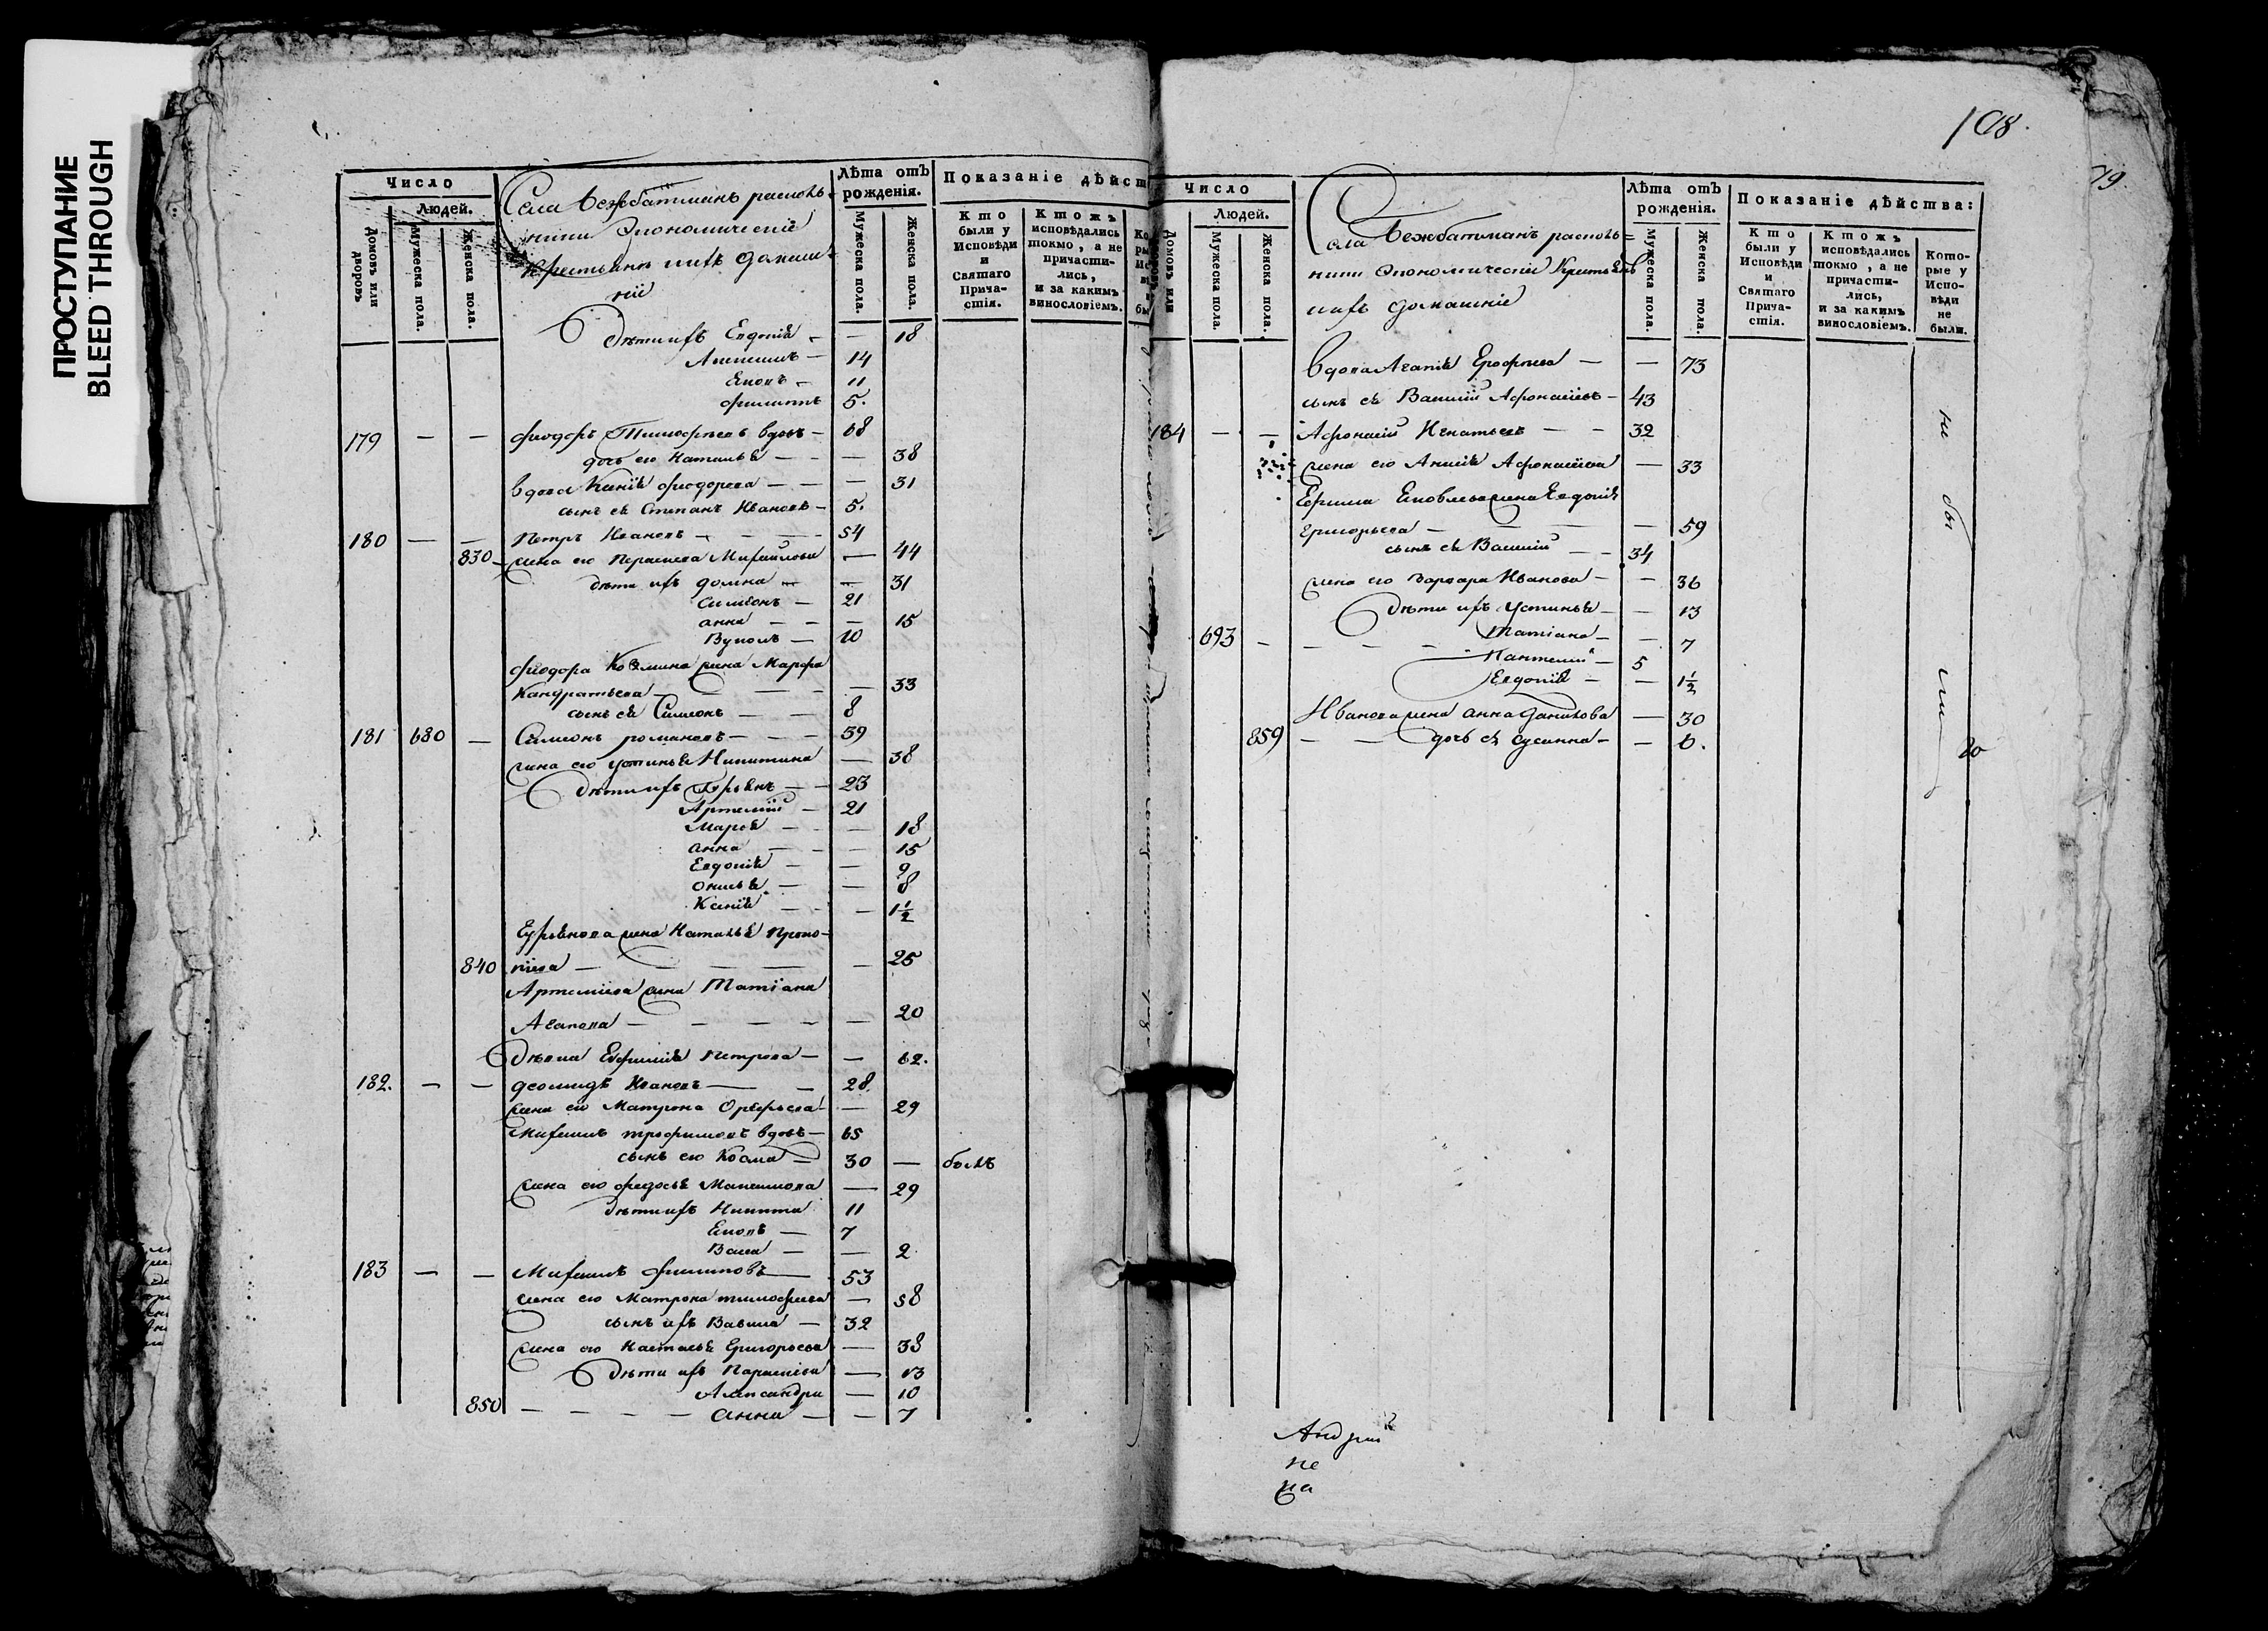 ПРОСТУПАНИЕ
BLEED THROUGH
Число
Людей.
Домовъ или дворовъ
Мужеска пола.
Женска пола.
Села Бежбатманъ расколь-
ники Экономическіе
крестьяне и ихъ домаш-
ніи
Лѣта отъ рожденія.
Мужеска пола.
Женска пола.
Показаніе дѣйст
Кто были у Исповѣди и Святаго Причастія.
Ктожъ исповѣдались токмо, а не причастились, и за какимъ винословіемъ.
Дѣти ихъ Евдокія — — 18
Алексѣй — 14
Яковъ — 11
Филиппъ 5.
179 — — Феодоръ Тимофѣевъ вдовъ — 68
дочь его Наталья — — — 38
вдова Ксенія Феодорова — — — 31
сынъ ея Степанъ Ивановъ — 5.
180 — — Петръ Ивановъ — — — 54
830 — жена его Параскева Михайлова — 44
дѣти ихъ Домна — — 31
Симеонъ — 21
Анна — — — 15
Вуколъ — 10
Феодора Козмина жена Марфа
Кандратьева — — — — 33
сынъ ея Симеонъ — — 8
181 680 — Симеонъ Романовъ — — — 59
жена его Устинья Никитина — 38
Дѣти ихъ Гурьянъ — — 23
Артемій — 21
Марья — — — 18
Анна — — — 15
Евдокія — — 9
— — 8
Ксенія — — — 1½
Гурьянова жена Наталья Проко-
840 піева — — — — — 25
Артеміева жена Татіана
Агапова — — — — — 20
Дѣвка Евфимія Петрова — — 62.
182. — — Деомидъ Ивановъ — — 28.
жена его Матрона Орефьева — — 29
Михаилъ Трофимовъ вдовъ — 65
сынъ его Косма — 30 — былъ
жена его Федосья Максимова — 29
дѣти ихъ Никита 11
Яковъ — 7
Васса — — 2
183 — — Михаилъ Филиповъ — 53
жена его Матрона Тимофеева — 58
сынъ ихъ Вавила — 32
жена его Настасья Григорьева — 38
Дѣти ихъ Параскева — 13
Александра — 10
850 — — — — Анна — — 7
108.
79.
Число
Людей.
Домовъ или
Мужеска пола.
Женска пола.
Села Бежбатманъ расколь=
ники Экономическіи Крестьяне
и ихъ домашніе
Лѣта отъ рожденія.
Мужеска пола.
Женска пола.
Показаніе дѣйства:
Кто были у Исповѣди и Святаго Причастія.
Ктожъ исповѣдались токмо, а не причастились, и за какимъ винословіемъ.
Которые у Исповѣди не были.
вдова Агапія Ерофѣева — — 73
сынъ ея Василій Афонасіевъ — 43
184 — — Афонасій Игнатьевъ — — 32
жена его Анисія Афонасіева — 33
Ефима Яковлева жена Евдокія
Григорьева — — — — 59
сынъ ея Василій — — 34
жена его Варвара Иванова — — 36
Дѣти ихъ Устинья — — 13
693 — — — — Татіана — — 7
Пантелий — 5
Евдокія — — 1½
Иванова жена Анна Данилова — 30
859 — — дочь ея Сусанна — — 6.
не бы ли
Андрей
не
на